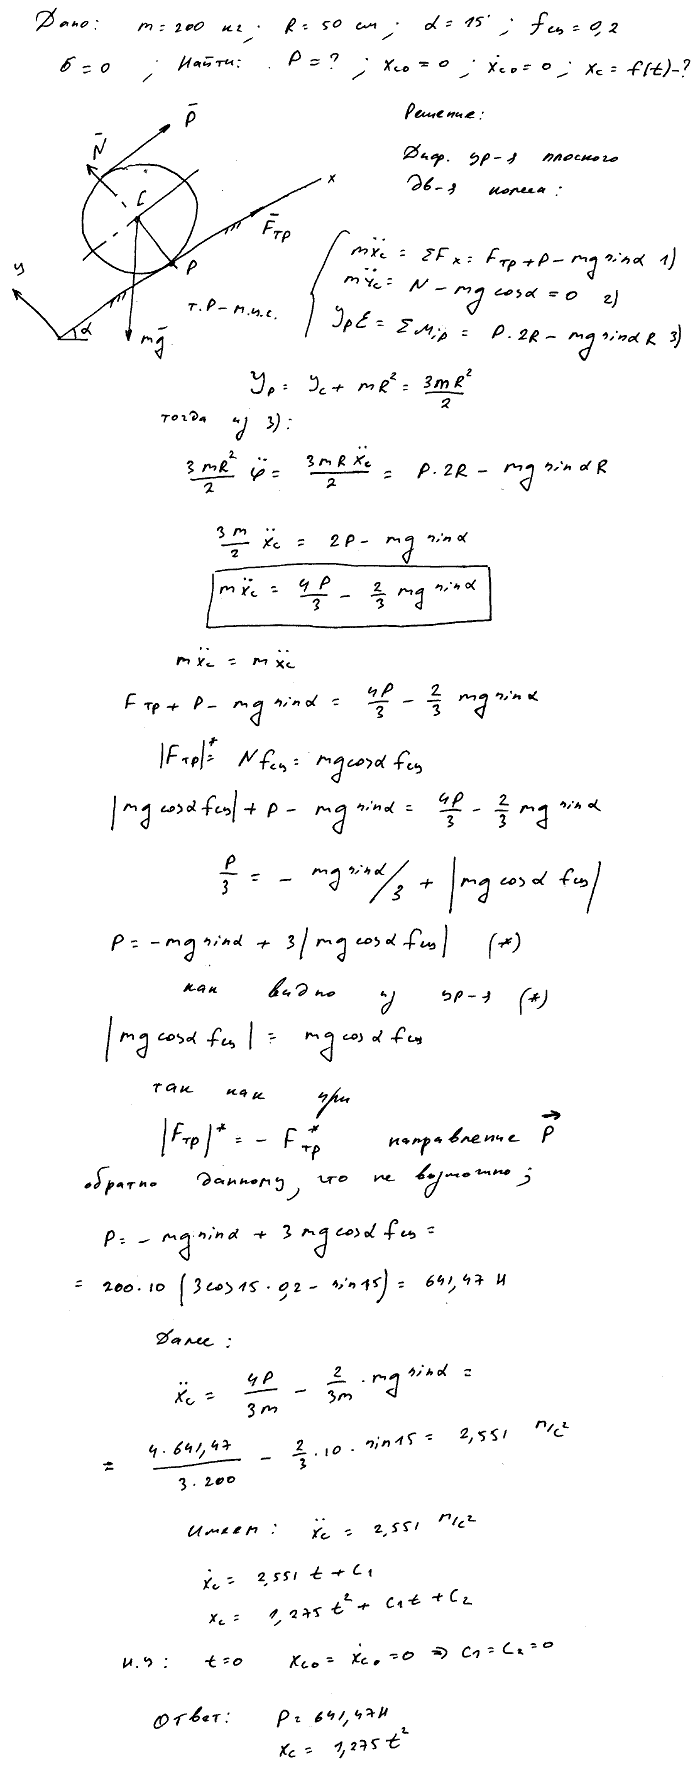 Дано: m=200 кг; R=50 см; α=15°; fсц=0,2
δ=0; Найти: P=?; xco=0; ẋco=0; xc=f(t)-?
Решение:
Диф. ур-я плоского
дв-я колеса:
P̄
N̄
C
x
F̄тр
P
y
α
mḡ
т.P-м.ц.с.
mẍc = ΣFx = Fтр+P-mg sinα 1)
mÿc = N-mg cosα=0 2)
Jpε = ΣMip = P·2R-mg sinα R 3)
Jp = Jc + mR² = 3mR²/2
тогда из 3):
3mR²/2 φ̈ = 3mRẍc/2 = P·2R - mg sinα R
3m/2 ẍc = 2P - mg sinα
mẍc = 4P/3 - 2/3 mg sinα
mẍc = mẍc
Fтр + P - mg sinα = 4P/3 - 2/3 mg sinα
|Fтр|* = N fсц = mg cosα fсц
|mg cosα fсц| + P - mg sinα = 4P/3 - 2/3 mg sinα
P/3 = - mg sinα/3 + |mg cosα fсц|
P = -mg sinα + 3|mg cosα fсц| (*)
как видно из ур-я (*)
|mg cosα fсц| = mg cosα fсц
так как при
|Fтр|* = - Fтр* направление P⃗
обратно данному, что не возможно;
P = - mg sinα + 3 mg cosα fсц =
= 200·10 (3cos15·0,2 - sin15) = 641,47 Н
Далее:
ẍc = 4P/3m - 2/3m · mg sinα =
= 4·641,47/3·200 - 2/3·10·sin15 = 2,551 м/с²
Имеем: ẍc = 2,551 м/с²
ẋc = 2,551 t + C1
xc = 1,275 t² + C1t + C2
н.у: t=0 xco = ẋco = 0 ⇒ C1 = C2 = 0
Ответ: P = 641,47Н
xc = 1,275 t²